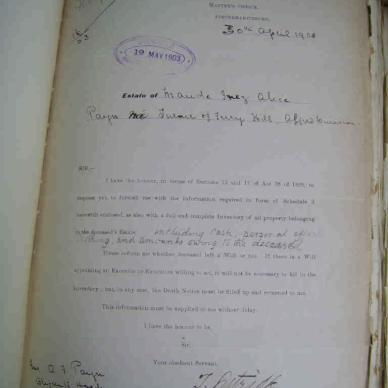 MASTER'S OFFICE,
PIETERMARITZBURG,
30th April 1903
19 MAY 1903
Estate of Maude Inez Alice
Payn
SIR,—
I have the honour, in terms of Sections 15 and 17 of Act 38 of 1899, to
request you to furnish me with the information required in form of Schedule
herewith enclosed, as also with a full and complete Inventory of all property belonging
to the deceased's Estate including cash, personal
clothing, and amounts owing to the deceased
Please inform me whether deceased left a Will or not. If there is a Will
appointing an Executor or Executors willing to act, it will not be necessary to fill in the
Inventory; but, in any case, the Death Notice must be filled up and returned to me.
This information must be supplied to me without delay.
I have the honour to be,
Sir,
Your obedient Servant,
Payn